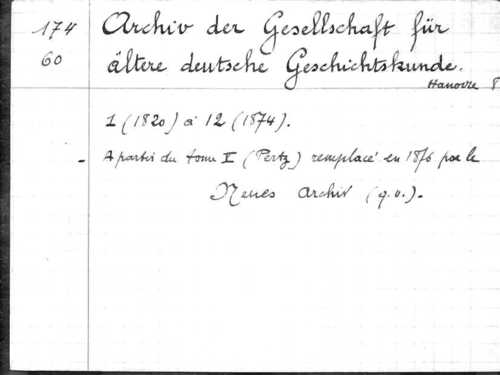 174 Archiv der Gesellschaft für
60 ältere deutsche Geschichtskunde.
Hanovre 8
1 (1820) à 12 (1874).
- A partir du tome V (Pertz) remplacé en 1876 par le
Neues Archiv (q.v.).-